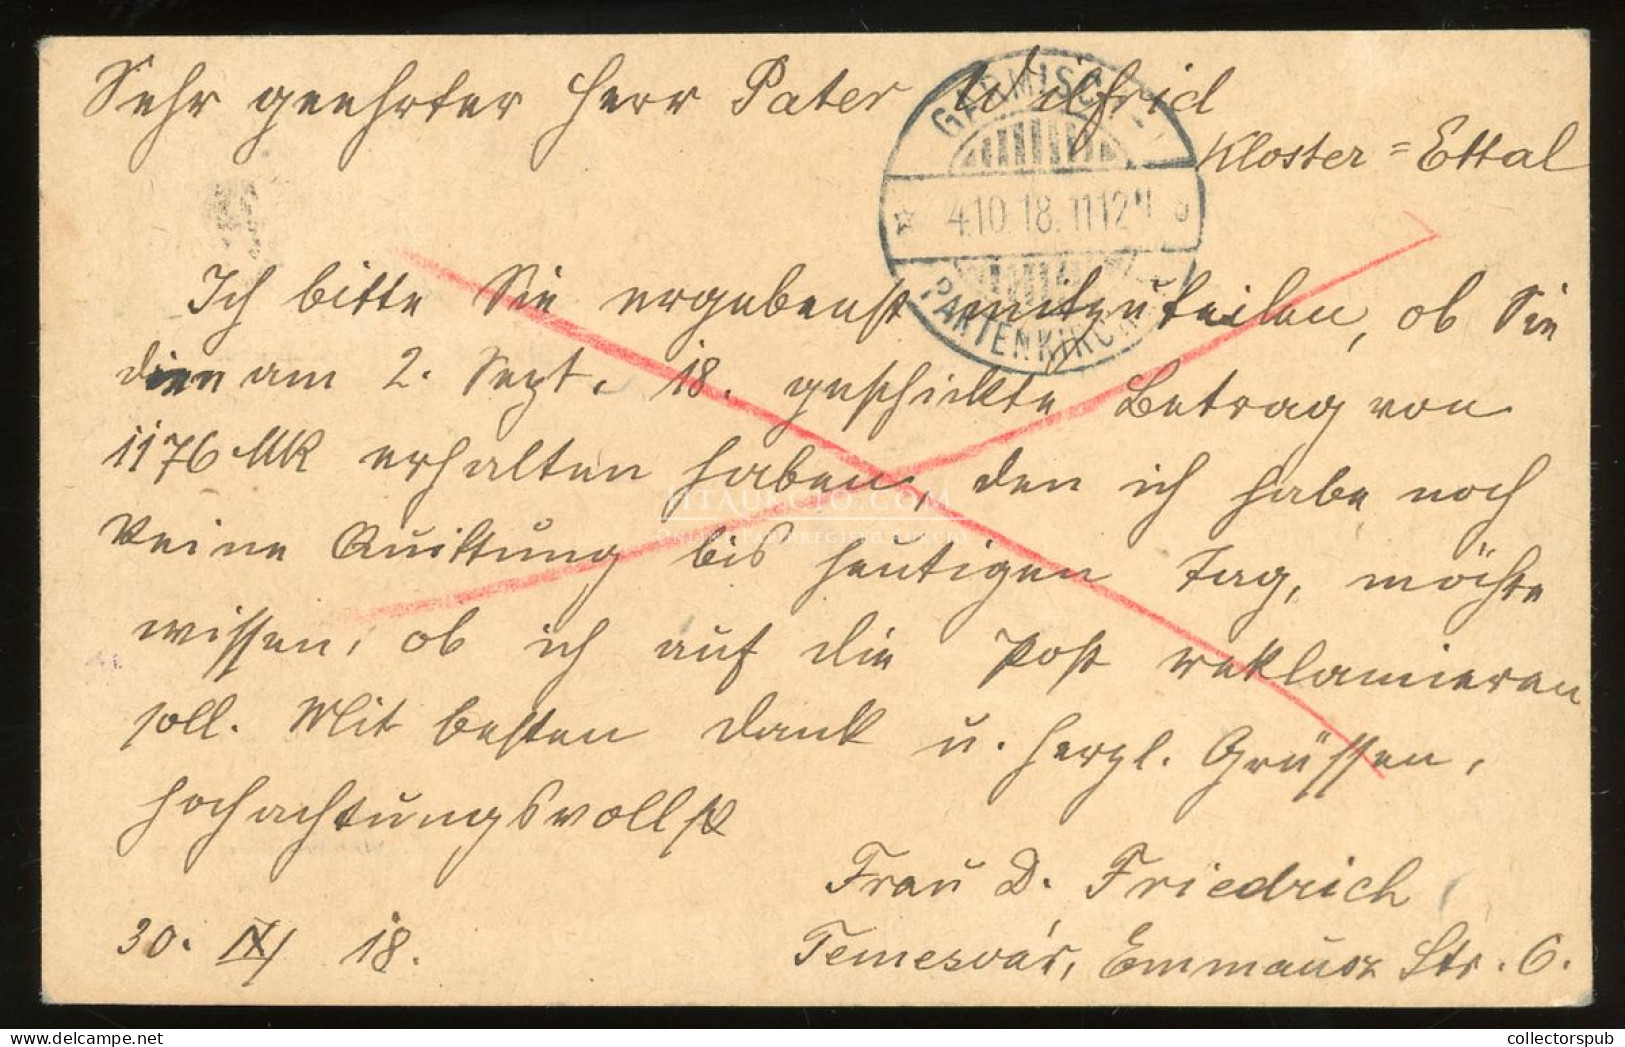 Sehr geehrter Herr Pater Wilfrid
Kloster = Ettal
GARMISCH
4.10.18. 11 12
PARTENKIRCHEN
Ich bitte Sie ergebenst mitzuteilen, ob Sie
den am 2. Sept. 18. geschickte Betrag von
1176 MK erhalten haben, den ich habe noch
keine Quittung bis heutigen Tag, möchte
wissen, ob ich auf die Post reklamieren
soll. Mit besten Dank u. herzl. Grüssen,
hochachtungsvollst
Frau D. Friedrich
30. IX 18.
Temesvár, Emmausz Str. 6.
collectorspub